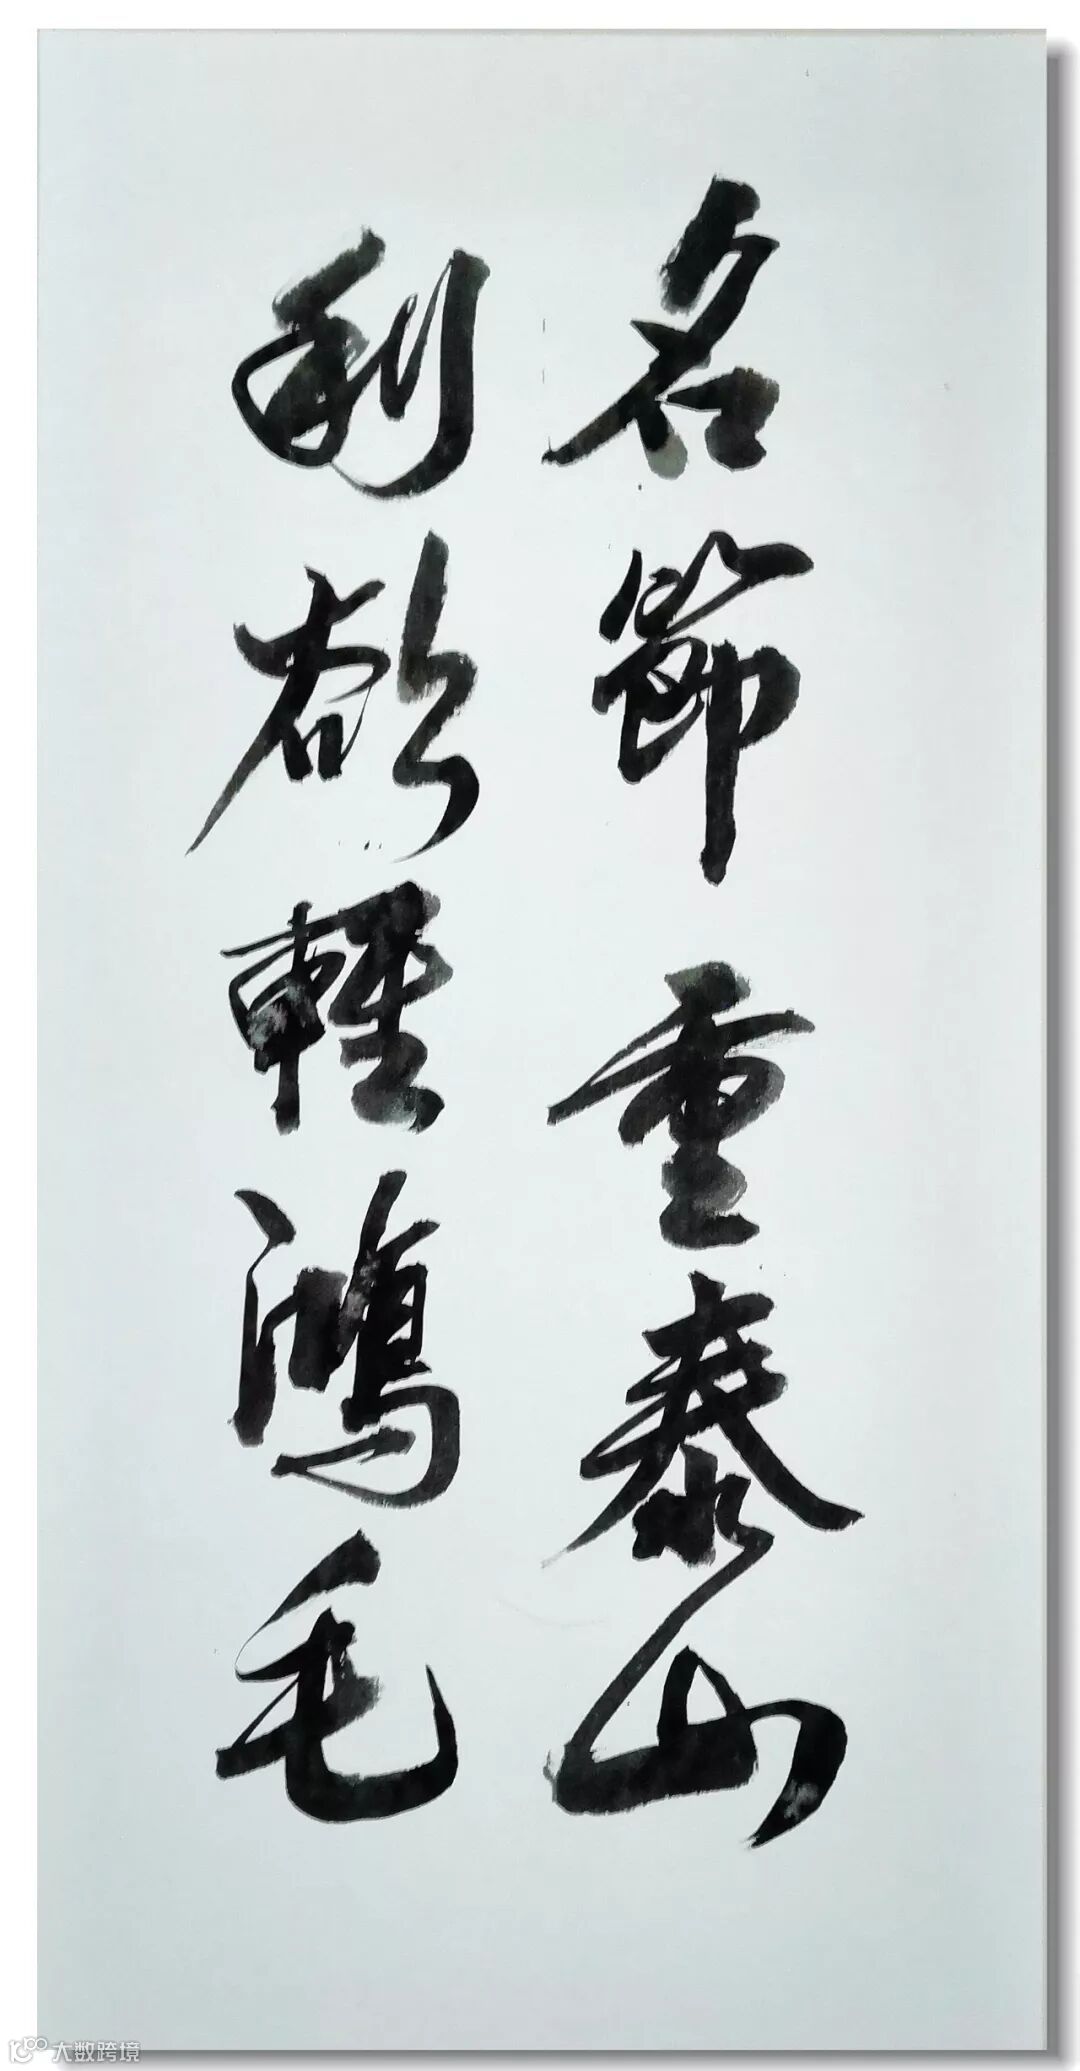 名節重泰山
利欲輕鴻毛
大数跨境